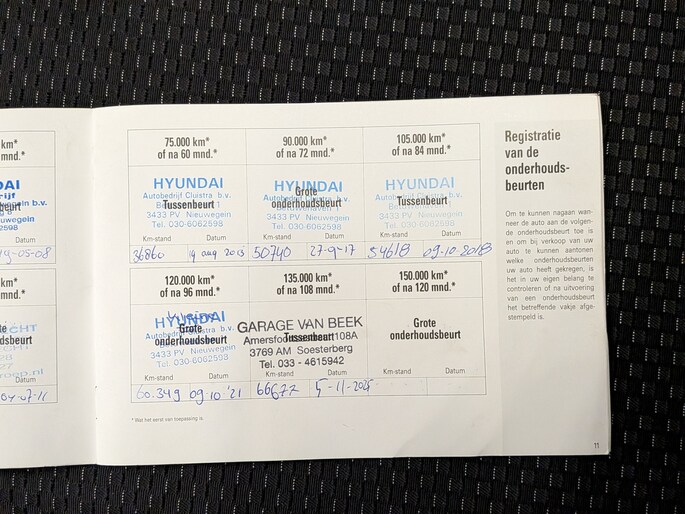 km*
mnd.*
DAI
rijf
beurt
uwegein
Datum
9-05-08
75.000 km*
of na 60 mnd.*
HYUNDAI
Autobedrijf Cluistra b.v.
Tussenbeurt
3433 PV Nieuwegein
Tel. 030-6062598
Km-stand Datum
36860 19 aug 2013
90.000 km*
of na 72 mnd.*
HYUNDAI
Grote
onderhoudsbeurt
3433 PV Nieuwegein
Tel. 030-6062598
Km-stand Datum
50740 27-9-17
105.000 km*
of na 84 mnd.*
HYUNDAI
Autobedrijf Cluistra b.v.
Tussenbeurt
3433 PV Nieuwegein
Tel. 030-6062598
Km-stand Datum
54618 09-10-2018
km*
mnd.*
beurt
Datum
04-07-11
120.000 km*
of na 96 mnd.*
HYUNDAI
Grote
onderhoudsbeurt
3433 PV Nieuwegein
Tel. 030-6062598
60.349 09-10-'21
135.000 km*
of na 108 mnd.*
GARAGE VAN BEEK
Tussenbeurt
108A
3769 AM Soesterberg
Tel. 033 - 4615942
Km-stand Datum
66677 5-11-2025
150.000 km*
of na 120 mnd.*
Grote
onderhoudsbeurt
Km-stand Datum
* Wat het eerst van toepassing is
Registratie
van de
onderhouds-
beurten
Om te kunnen nagaan wan-
neer de auto aan de volgen-
de onderhoudsbeurt toe is
en om bij verkoop van uw
auto te kunnen aantonen
welke onderhoudsbeurten
uw auto heeft gekregen, is
het in uw eigen belang te
controleren of na uitvoering
van een onderhoudsbeurt
het betreffende vakje afge-
stempeld is.
11